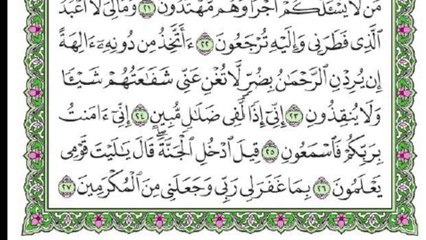 مَن لَّا يَسْـَٔلُكُمْ أَجْرًا وَهُم مُّهْتَدُونَ ٢١ وَمَالِىَ لَآ أَعْبُدُ
ٱلَّذِى فَطَرَنِى وَإِلَيْهِ تُرْجَعُونَ ٢٢ ءَأَتَّخِذُ مِن دُونِهِۦٓ ءَالِهَةً
إِن يُرِدْنِ ٱلرَّحْمَٰنُ بِضُرٍّ لَّا تُغْنِ عَنِّى شَفَٰعَتُهُمْ شَيْـًٔا
وَلَا يُنقِذُونِ ٢٣ إِنِّىٓ إِذًا لَّفِى ضَلَٰلٍ مُّبِينٍ ٢٤ إِنِّىٓ ءَامَنتُ
بِرَبِّكُمْ فَٱسْمَعُونِ ٢٥ قِيلَ ٱدْخُلِ ٱلْجَنَّةَ ۖ قَالَ يَٰلَيْتَ قَوْمِى
يَعْلَمُونَ ٢٦ بِمَا غَفَرَ لِى رَبِّى وَجَعَلَنِى مِنَ ٱلْمُكْرَمِينَ ٢٧